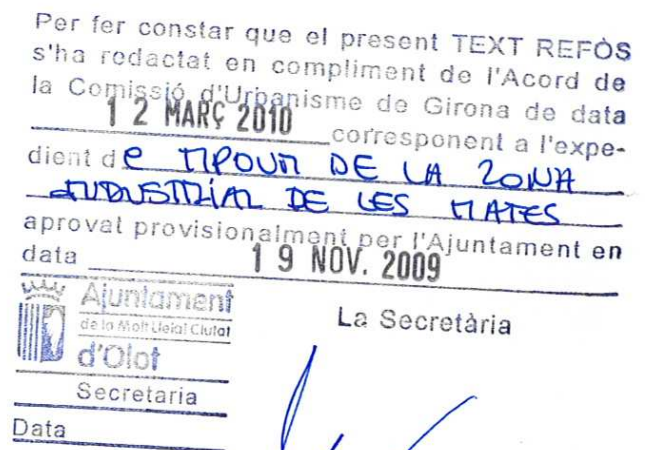 Per fer constar que el present TEXT REFÒS
s'ha redactat en compliment de l'Acord de
la Comissió d'Urbanisme de Girona de data
12 MARÇ 2010 corresponent a l'expe-
dient de MPOUM DE LA ZONA
INDUSTRIAL DE LES MATES
aprovat provisionalment per l'Ajuntament en
data 19 NOV. 2009
Ajuntament
de la Molt Lleial Ciutat
d'Olot
Secretaria
Data
La Secretària